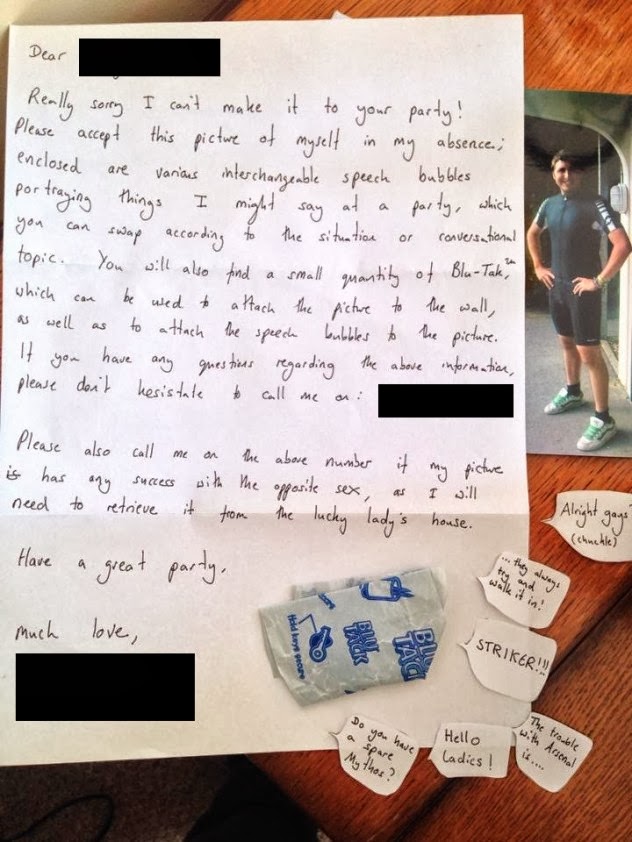 Dear
Really sorry I can't make it to your party!
Please accept this picture of myself in my absence;
enclosed are various interchangeable speech bubbles
portraying things I might say at a party, which
you can swap according to the situation or conversational
topic. You will also find a small quantity of Blu-Tak,™
which can be used to attach the picture to the wall,
as well as to attach the speech bubbles to the picture.
If you have any questions regarding the above information,
please don't hesistate to call me on:
Please also call me on the above number if my picture
is has any success with the opposite sex, as I will
need to retrieve it from the lucky lady's house.
Have a great party.
much love,
Alright gays?
(chuckle)
...they always
try and
walk it in!
STRIKER!!!
The trouble
with Arsenal
is....
Hello
Ladies!
Do you have
a spare
Mythos?
BLU
TACK
BLU
TACK